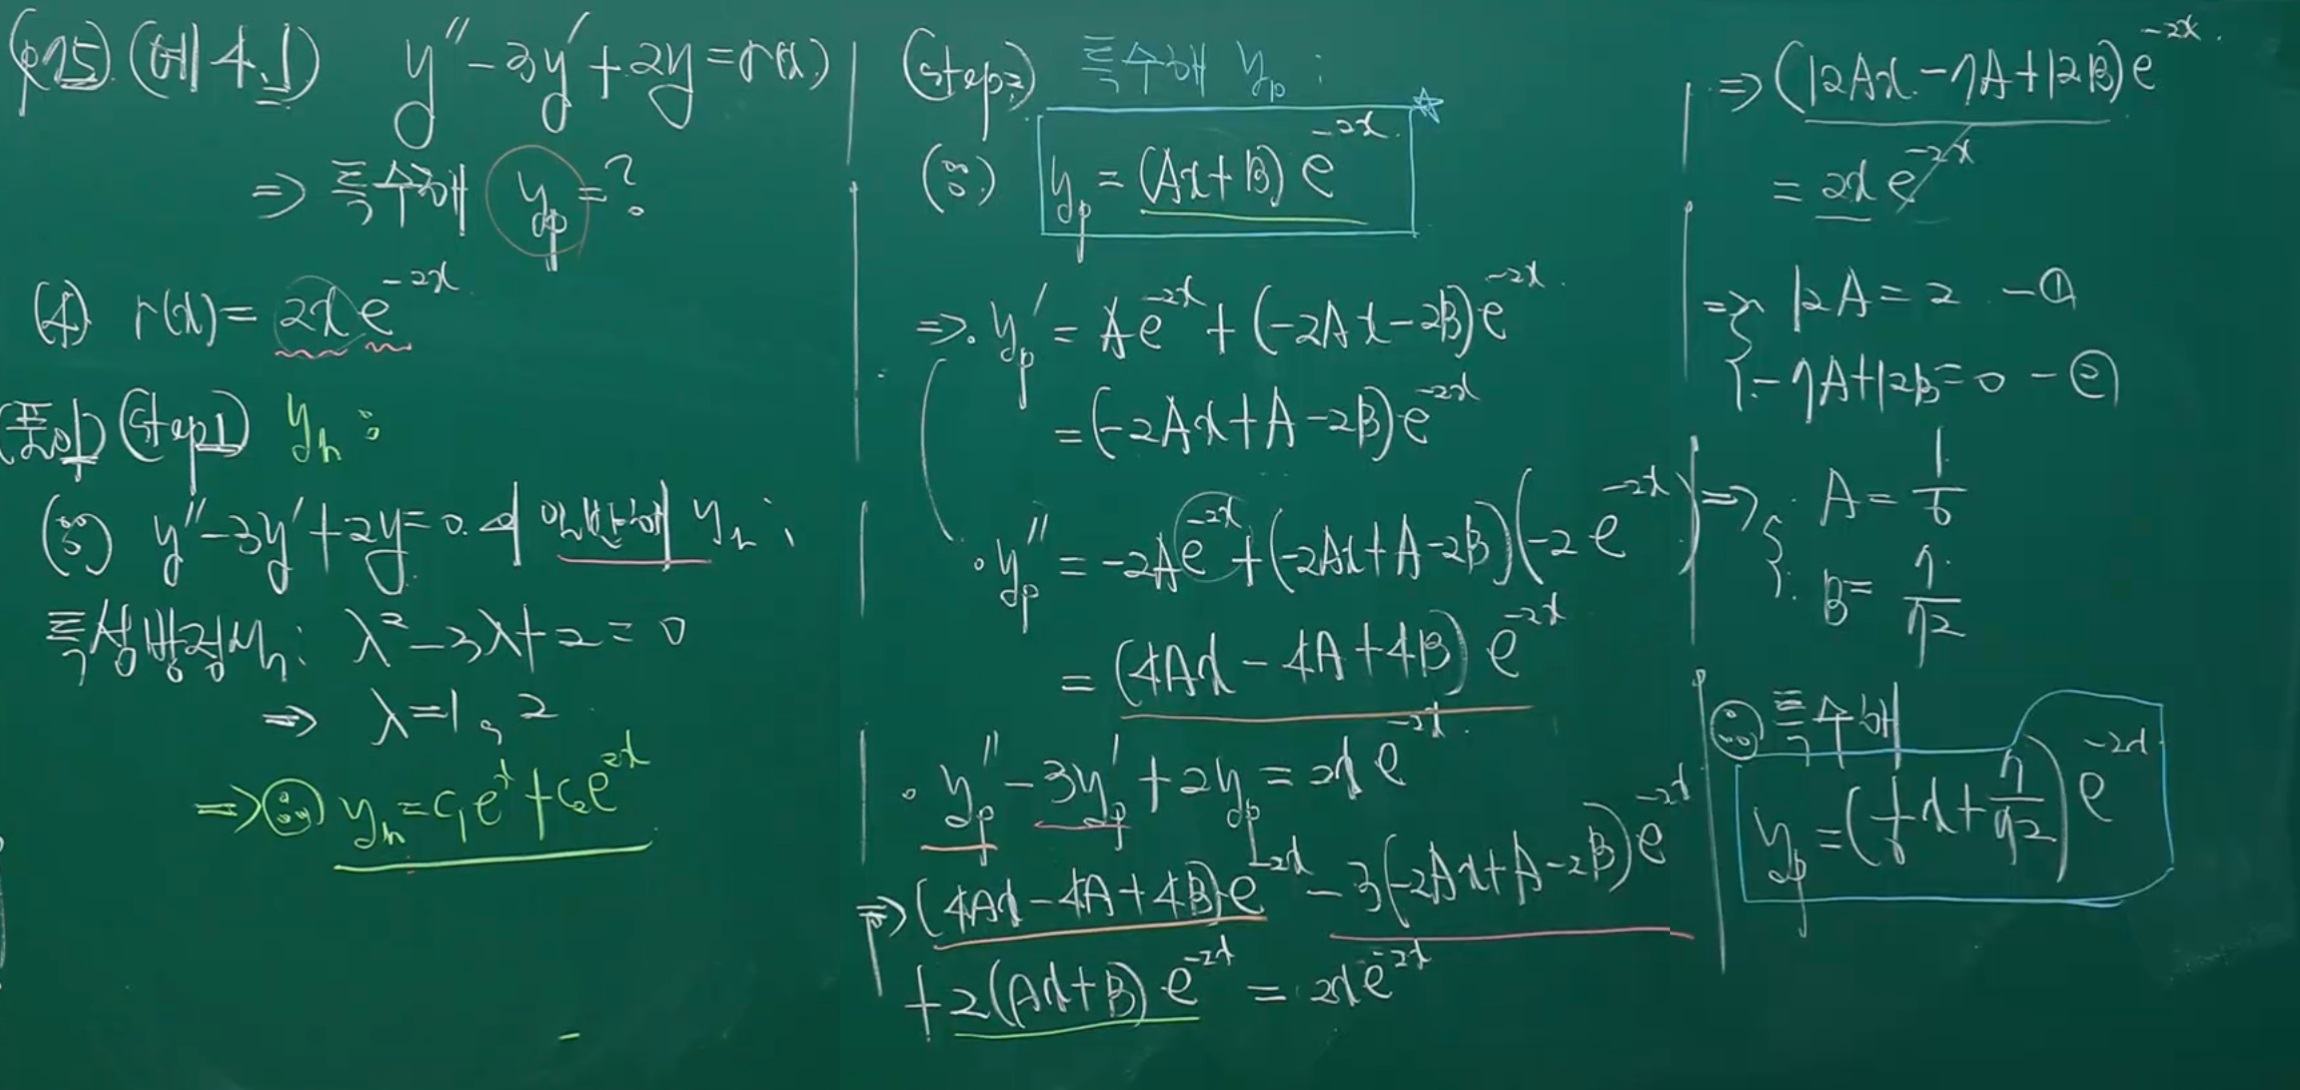 (p75) (예 4.1) y'' - 3y' + 2y = r(x)
⇒ 특수해 y_p = ?
(4) r(x) = 2x e^{-2x}
(풀이) (step1) y_h :
y'' - 3y' + 2y = 0 의 일반해 y_h ;
특성방정식 : λ² - 3λ + 2 = 0
⇒ λ = 1, 2
⇒ y_h = c₁e^x + c₂e^{2x}
(step2) 특수해 y_p :
y_p = (Ax + B) e^{-2x}
⇒ y_p' = Ae^{-2x} + (-2Ax - 2B)e^{-2x}
= (-2Ax + A - 2B)e^{-2x}
· y_p'' = -2Ae^{-2x} + (-2Ax + A - 2B)(-2e^{-2x})
= (4Ax - 4A + 4B) e^{-2x}
· y_p'' - 3y_p' + 2y_p = 2x e^{-2x}
⇒ (4Ax - 4A + 4B)e^{-2x} - 3(-2Ax + A - 2B)e^{-2x}
+ 2(Ax + B) e^{-2x} = 2x e^{-2x}
⇒ (12Ax - 7A + 12B)e^{-2x}
= 2x e^{-2x}
⇒ { 12A = 2 - ①
{ -7A + 12B = 0 - ②
⇒ { A = 1/6
B = 7/72
특수해
y_p = (1/6 x + 7/72) e^{-2x}